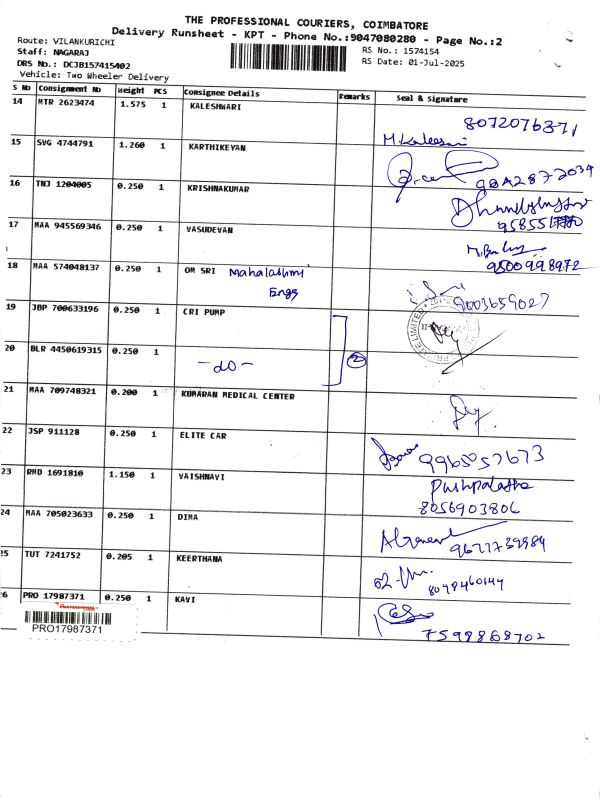 THE PROFESSIONAL COURIERS, COIMBATORE
Delivery Runsheet - KPT - Phone No.:9047080280 - Page No.:2
Route: VILANKURICHI
RS No.: 1574154
Staff: NAGARAJ
RS Date: 01-Jul-2025
DRS No.: DCJB157415402
Vehicle: Two Wheeler Delivery
S No Consignment No Weight PCS Consignee Details Remarks Seal & Signature
14 MTR 2623474 1.575 1 KALESHWARI
8072076371
M.Kaleswari
15 SVG 4744791 1.260 1 KARTHIKEYAN
9842872034
16 TNJ 1204005 0.250 1 KRISHNAKUMAR
17 MAA 945569346 0.250 1 VASUDEVAN
9500998972
18 MAA 574048137 0.250 1 OM SRI Mahalakshmi
Engg
9003659027
19 JBP 700633196 0.250 1 CRI PUMP
PRIVATE LIMITED
20 BLR 4450619315 0.250 1
-do- 2
21 MAA 709748321 0.200 1 KUMARAN MEDICAL CENTER
22 JSP 911128 0.250 1 ELITE CAR
9965057673
23 RMD 1691810 1.150 1 VAISHNAVI
Pushpalatha
8056903806
24 MAA 705023633 0.250 1 DIMA
9677739984
25 TUT 7241752 0.205 1 KEERTHANA
8098460144
26 PRO 17987371 0.250 1 KAVI
7598868702
PRO17987371